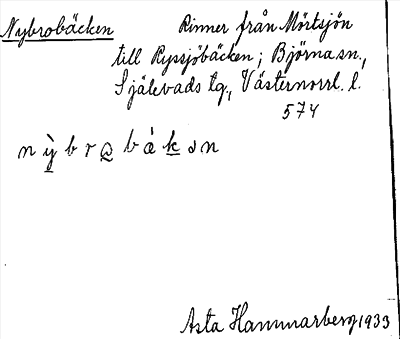 Nybrobäcken Rinner från Mörtsjön
till Ryssjöbäcken; Björna sn.,
Själevads tg., Västernorrl. l.
574
n ỳ̠ b r o̠ b ä́ k̠ ə n
Asta Hammarberg 1933